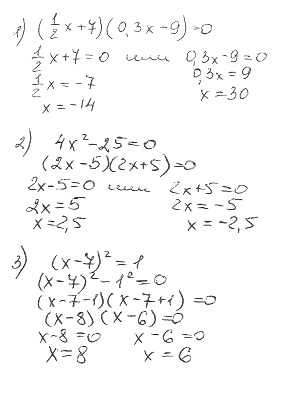 1) (1/2 x + 7)(0,3x - 9) = 0
1/2 x + 7 = 0 или 0,3x - 9 = 0
1/2 x = -7 0,3x = 9
x = -14 x = 30
2) 4x² - 25 = 0
(2x - 5)(2x + 5) = 0
2x - 5 = 0 или 2x + 5 = 0
2x = 5 2x = -5
x = 2,5 x = -2,5
3) (x - 7)² = 1
(x - 7)² - 1² = 0
(x - 7 - 1)(x - 7 + 1) = 0
(x - 8)(x - 6) = 0
x - 8 = 0 x - 6 = 0
x = 8 x = 6